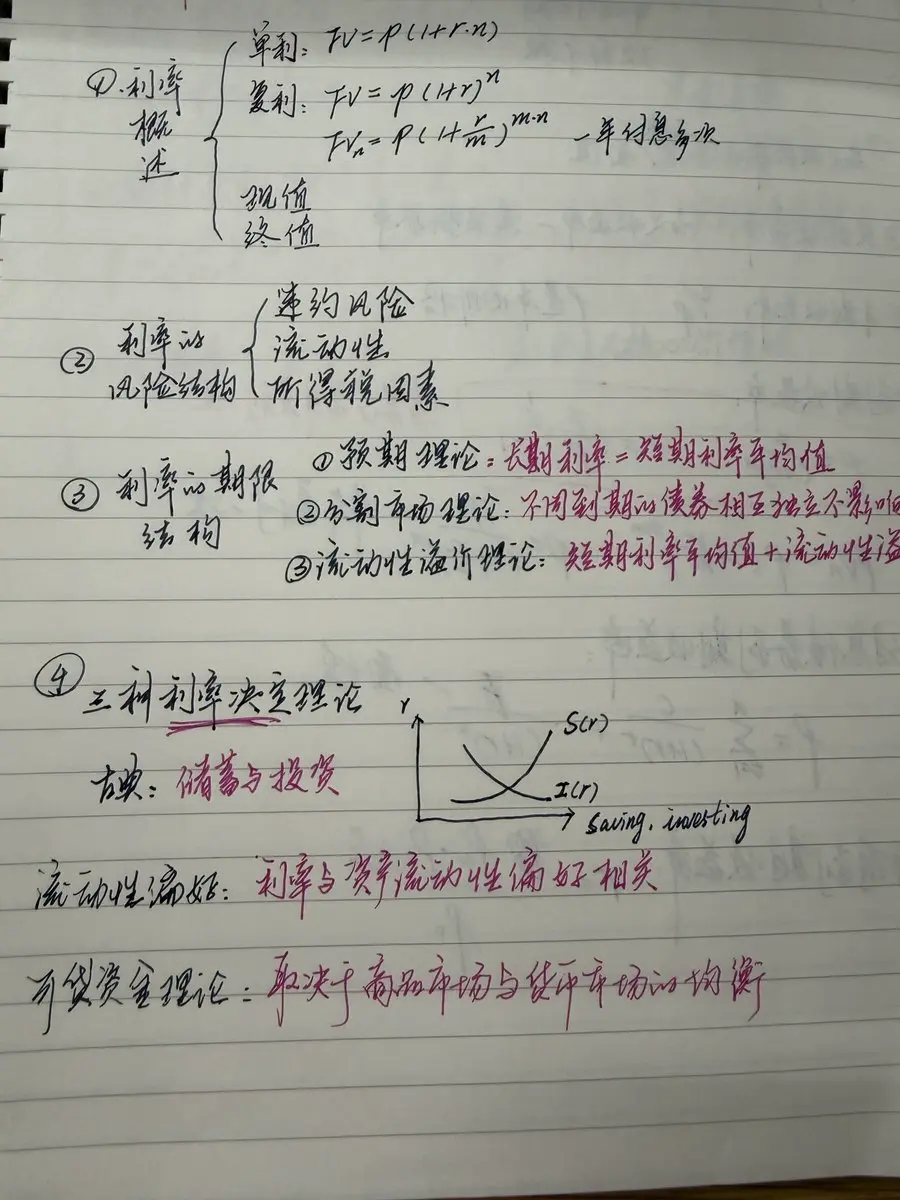 单利：FV=P(1+r·n)
①.利率概述
复利：FV=P(1+r)^n
FVₙ=P(1+r/m)^m·n 一年付息多次
现值
终值
② 利率的风险结构
违约风险
流动性
所得税因素
③ 利率的期限结构
①预期理论：长期利率=短期利率平均值
②分割市场理论：不同到期的债券相互独立不影响
③流动性溢价理论：短期利率平均值+流动性溢
④ 三种利率决定理论
r
S(r)
I(r)
saving, investing
古典：储蓄与投资
流动性偏好：利率与资产流动性偏好相关
可贷资金理论：取决于商品市场与货币市场的均衡